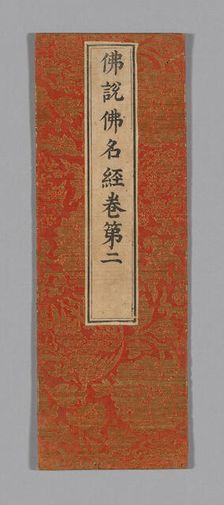 佛説佛名經卷第二